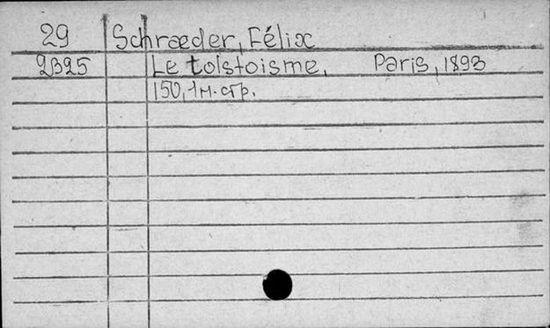 29 Schræder, Félix
2B25 Le tolstoisme. Paris, 1893
150, 1 н. стр.